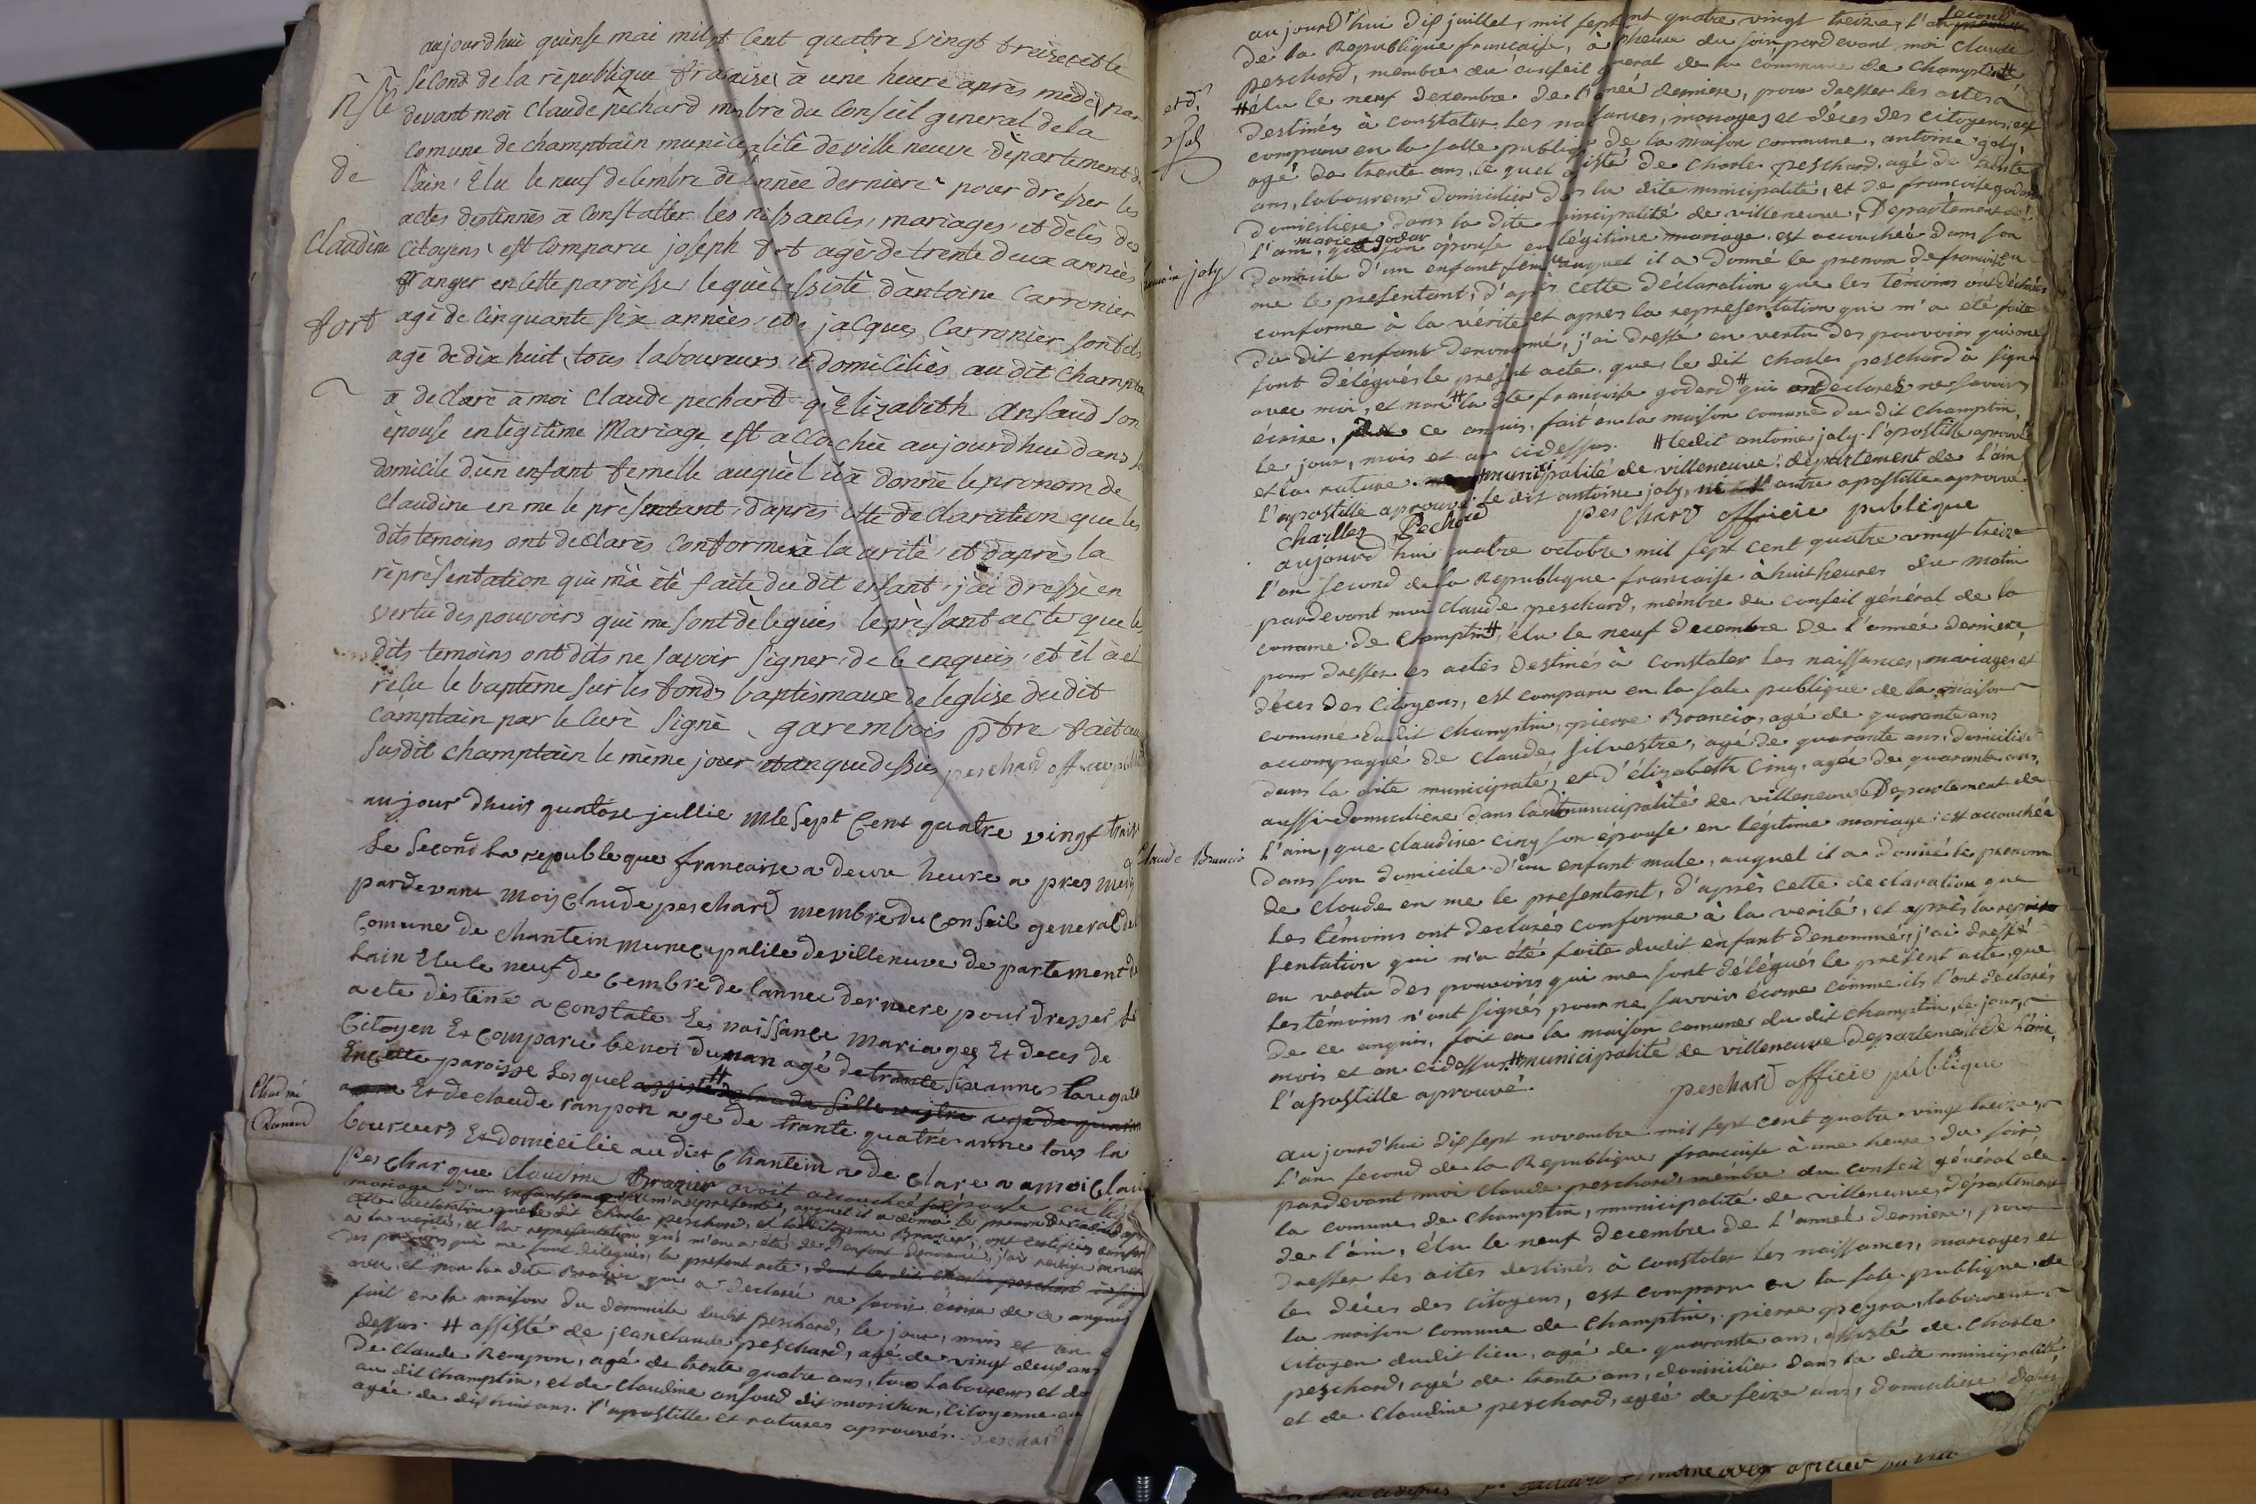 aujourdhui quinse mai mil sept Cent quatre Vingt treise et le
second de la république francaise à une heure après medi par
devant moi Claude péchard membre du Conseil general de la
Comune de champtain municipalité de ville neuve département de
l'ain, Elu le neuf decembre de l'année derniere pour dresser les
actes destinnés à Constatter les nissances, mariages, et décès des
Citoyens, est Comparu joseph fort agé de trente deux années
granger en cette paroisse lequel assisté d'antoine Carronier
agé de Cinquante six années, et de jacques Carronier son fils
agé de dix huit, tous laboureurs et domiciliés au dit Champtain
à declaré à moi Claude pechart q. Elizabeth Ansaud son
épouse en légitime Mariage est accouchée aujourd'hui dans son
domicile d'un enfant femelle auquel il à donné le pronom de
Claudine en me le présentant, d'après cette déclaration que les
dits temoins ont declarés conforme à la verité, et d'après la
représentation qui m'à été faite du dit enfant, j'ai dressé en
vertu des pouvoirs qui me sont délégués le présant acte que les
dits temoins ont dits ne savoir signer, de ce enquis, et il à eté
reçu le baptème sur les fonds baptismaux de l'eglise du dit
Camptain par le Curé signé garembois ptre fait au
susdit champtain le même jour et an que dessus peschard officie publi
de
Claudine
fort
aujour dhuis quatose jullie mle sept Cent quatre vingt traise
Le second La republeque francaise a deux heure a pres midy
par devant mois Claude peschard membre du Conseil general de la
Comune de Chantein municupalite de villenuve de partement de
Lain Elu le neuf de Cembre de lannee derniere pour dresser les
acte distiné a Constate les naissance mariages Et deces de
Citoyen Et Comparu benoi duman agé de trante six annes
En cette paroisse Lesquel assisté #
Et de claude ranpon age de trante quatre anne tous la
boureurs Et domicilie au dit Chantein a de Clare a moi Clau
pes char que Claudine brazier avoit accouché son épouse en leg
mariage d'un enfant m'a été présenté, auquel il a donné le prenom de Claud
Cette declaration que le dit Charle peschard, et la citoyenne Brazier, ont certifiés confor
à la verité, et la representation qui m'en a été de l'enfant denommé, j'ai redigé en vertu
des pouvoirs qui me sont délégués, le present acte, dont le dit charle peschard
avec, et non la dite Brazier qui a declaré ne savoir écrire de ce enquis
fait en la maison du domicile dudit peschard, le jour, mois et an
dessus. # assisté de jean claude peschard, agé de vingt deux ans
de claude Rempron, agé de trente quatre ans, tous laboureurs et do
au dit Champtin, et de Claudine ansoud dit morichon, Citoyenne au
agée de dix huit ans. l'apostille et ratures aprouvés. peschard
aujourd'hui dix juillet, mil sept cent quatre vingt treize, l'an second
de la Republique francaise, à heure du soir, pardevant moi Claude
Peschard, membre du conseil general de la commune de Champtin #
# élu le neuf decembre de l'année derniere, pour dresser les actes
destinés à constater les naissances, mariages et décès des citoyens, est
comparu en la salle publique de la maison commune, antoine joly,
agé de trente ans, lequel assisté de Charle peschard, agé de trente
ans, laboureur domicilier dans la dite municipalité, et de francoise godard
domiciliere dans la dite municipalité de villeneuve, Departement de
l'ain, que marie godar son épouse en légitime mariage est accouchée dans son
domicile d'un enfant femel auquel il a donné le prenom de francoise en
me le presentant, d'après cette déclaration que les témoins ont déclarés
conforme à la vérité et apres la representation qui m'a été faite
du dit enfant denommé, j'ai dressé en vertu des pouvoirs qui me
sont délégués le présent acte, que le dit charles peschard à signé
avec moi, et non # la dte francoise godard # qui ont declarés ne savoir
écrire, de ce enquis, fait en la maison comune du dit Champtin,
le jour, mois et an cidessus. # ledit antoine joly. l'apostille aprouvée
et la rature. # municipalité de villeneuve, département de l'ain
l'apostille aprouvé. le dit antoine joly, autre apostille aprouvé
Charles Pechard pesChard officie publique
antoine joly
aujourd'hui quatre octobre mil sept cent quatre vingt treize
l'an second de la Republique francaise à huit heures du matin
pardevant moi Claude peschard, membre du conseil général de la
comune de Champtin #, élu le neuf decembre de l'année derniere,
pour dresser les actes destinés à constater les naissances, mariages et
décès des Citoyens, est comparu en la sale publique de la maison
comune dudit Champtin, pierre Brancio, agé de quarante ans
accompagné de Claude Silvestre, agé de quarante ans, domicilié
dans la dite municipalité, et d'élizabeth Cirry, agée de quarante ans,
aussi domiciliere dans la dite municipalité de villeneuve Departement de
l'ain, que claudine ciry son épouse en légitime mariage est accouchée
dans son domicile d'un enfant male, auquel il a donné le prenom
de Claude en me le presentant, d'après cette declaration que
les témoins ont declarés conforme à la verité, et après la repré
sentation qui m'a été faite dudit enfant denommé, j'ai dressé
en vertu des pouvoirs qui me sont délégués le présent acte, que
les témoins n'ont signés pour ne savoir écrire comme ils l'ont declarés
de ce enquis, fait en la maison comune du dit champtin, le jour,
mois et an cidessus. # municipalité de villeneuve departement de l'ain,
l'apostille aprouvé. peschard officie publique
Claude Brancio
aujourd'hui dix sept novembre mil sept cent quatre vingt treize
l'an second de la Republique francaise à une heure du soir,
pardevant moi Claude peschard, membre du conseil général de
la comune de Champtin, municipalité de villeneuve, departement
de l'ain, élu le neuf decembre de l'année derniere, pour
dresser les actes destinés à constater les naissances, mariages et
les décès des citoyens, est comparu en la sale publique de
la maison comune de Champtin, pierre peyra, laboureur
citoyen dudit lieu, agé de quarante ans, assisté de Charle
peschard, agé de trente ans, domicilier dans la dite municipalité,
et de Claudine peschard, agée de seize ans, domiciliere dans